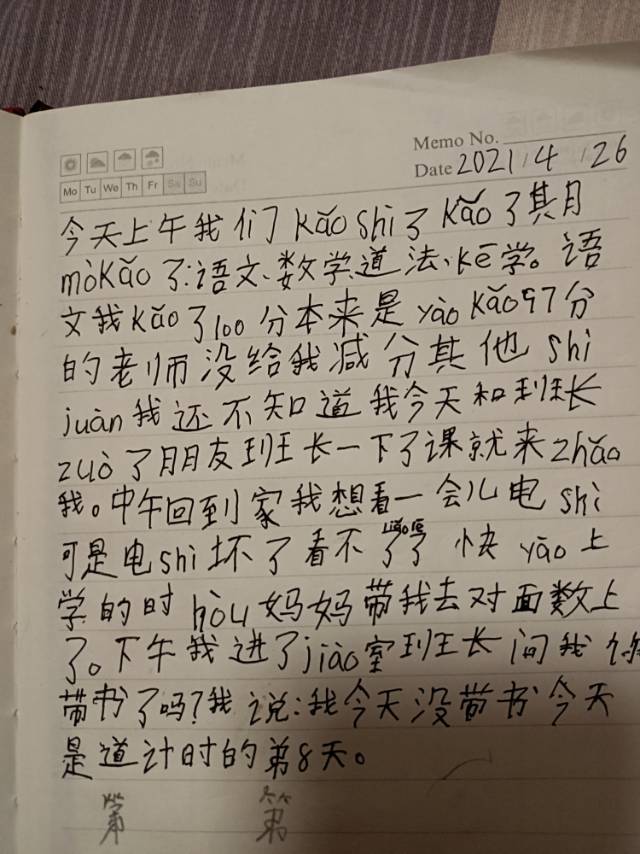 Memo No.
Date 2021/4/26
Mo Tu We Th Fr Sa Su
今天上午我们kǎoshì了kǎo了其月
mòkǎo了:语文、数学道法、kē学。语
文我kǎo了100分本来是yào kǎo97分
的老师没给我减分其他shì
juàn我还不知道我今天和班长
zuò了朋友班长一下了课就来zhǎo
我。中午回到家我想看一会儿电shì
可是电shì坏了看不了 快yào上
学的时hòu妈妈带我去对面数上
了。下午我进了jiào室班长问我你
带书了吗?我说:我今天没带书今天
是道计时的第8天。
第 第